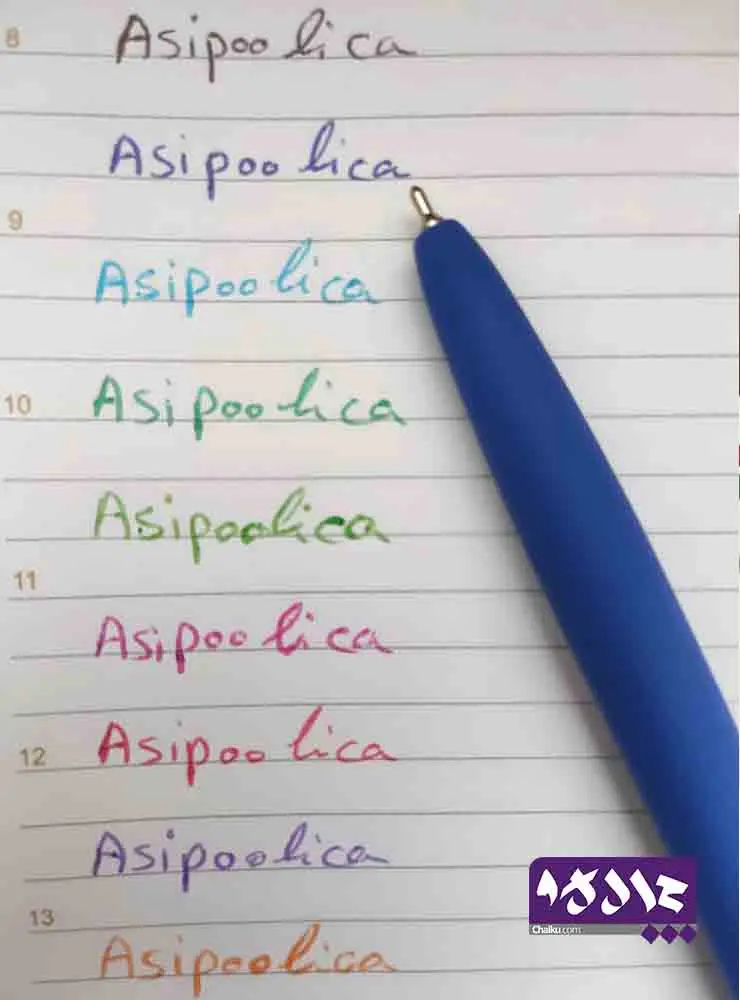 8
Asipoolica
Asipoolica
9
Asipoolica
10
Asipoolica
Asipoolica
11
Asipoolica
12
Asipoolica
Asipoolica
13
Asipoolica
Chaiku.com